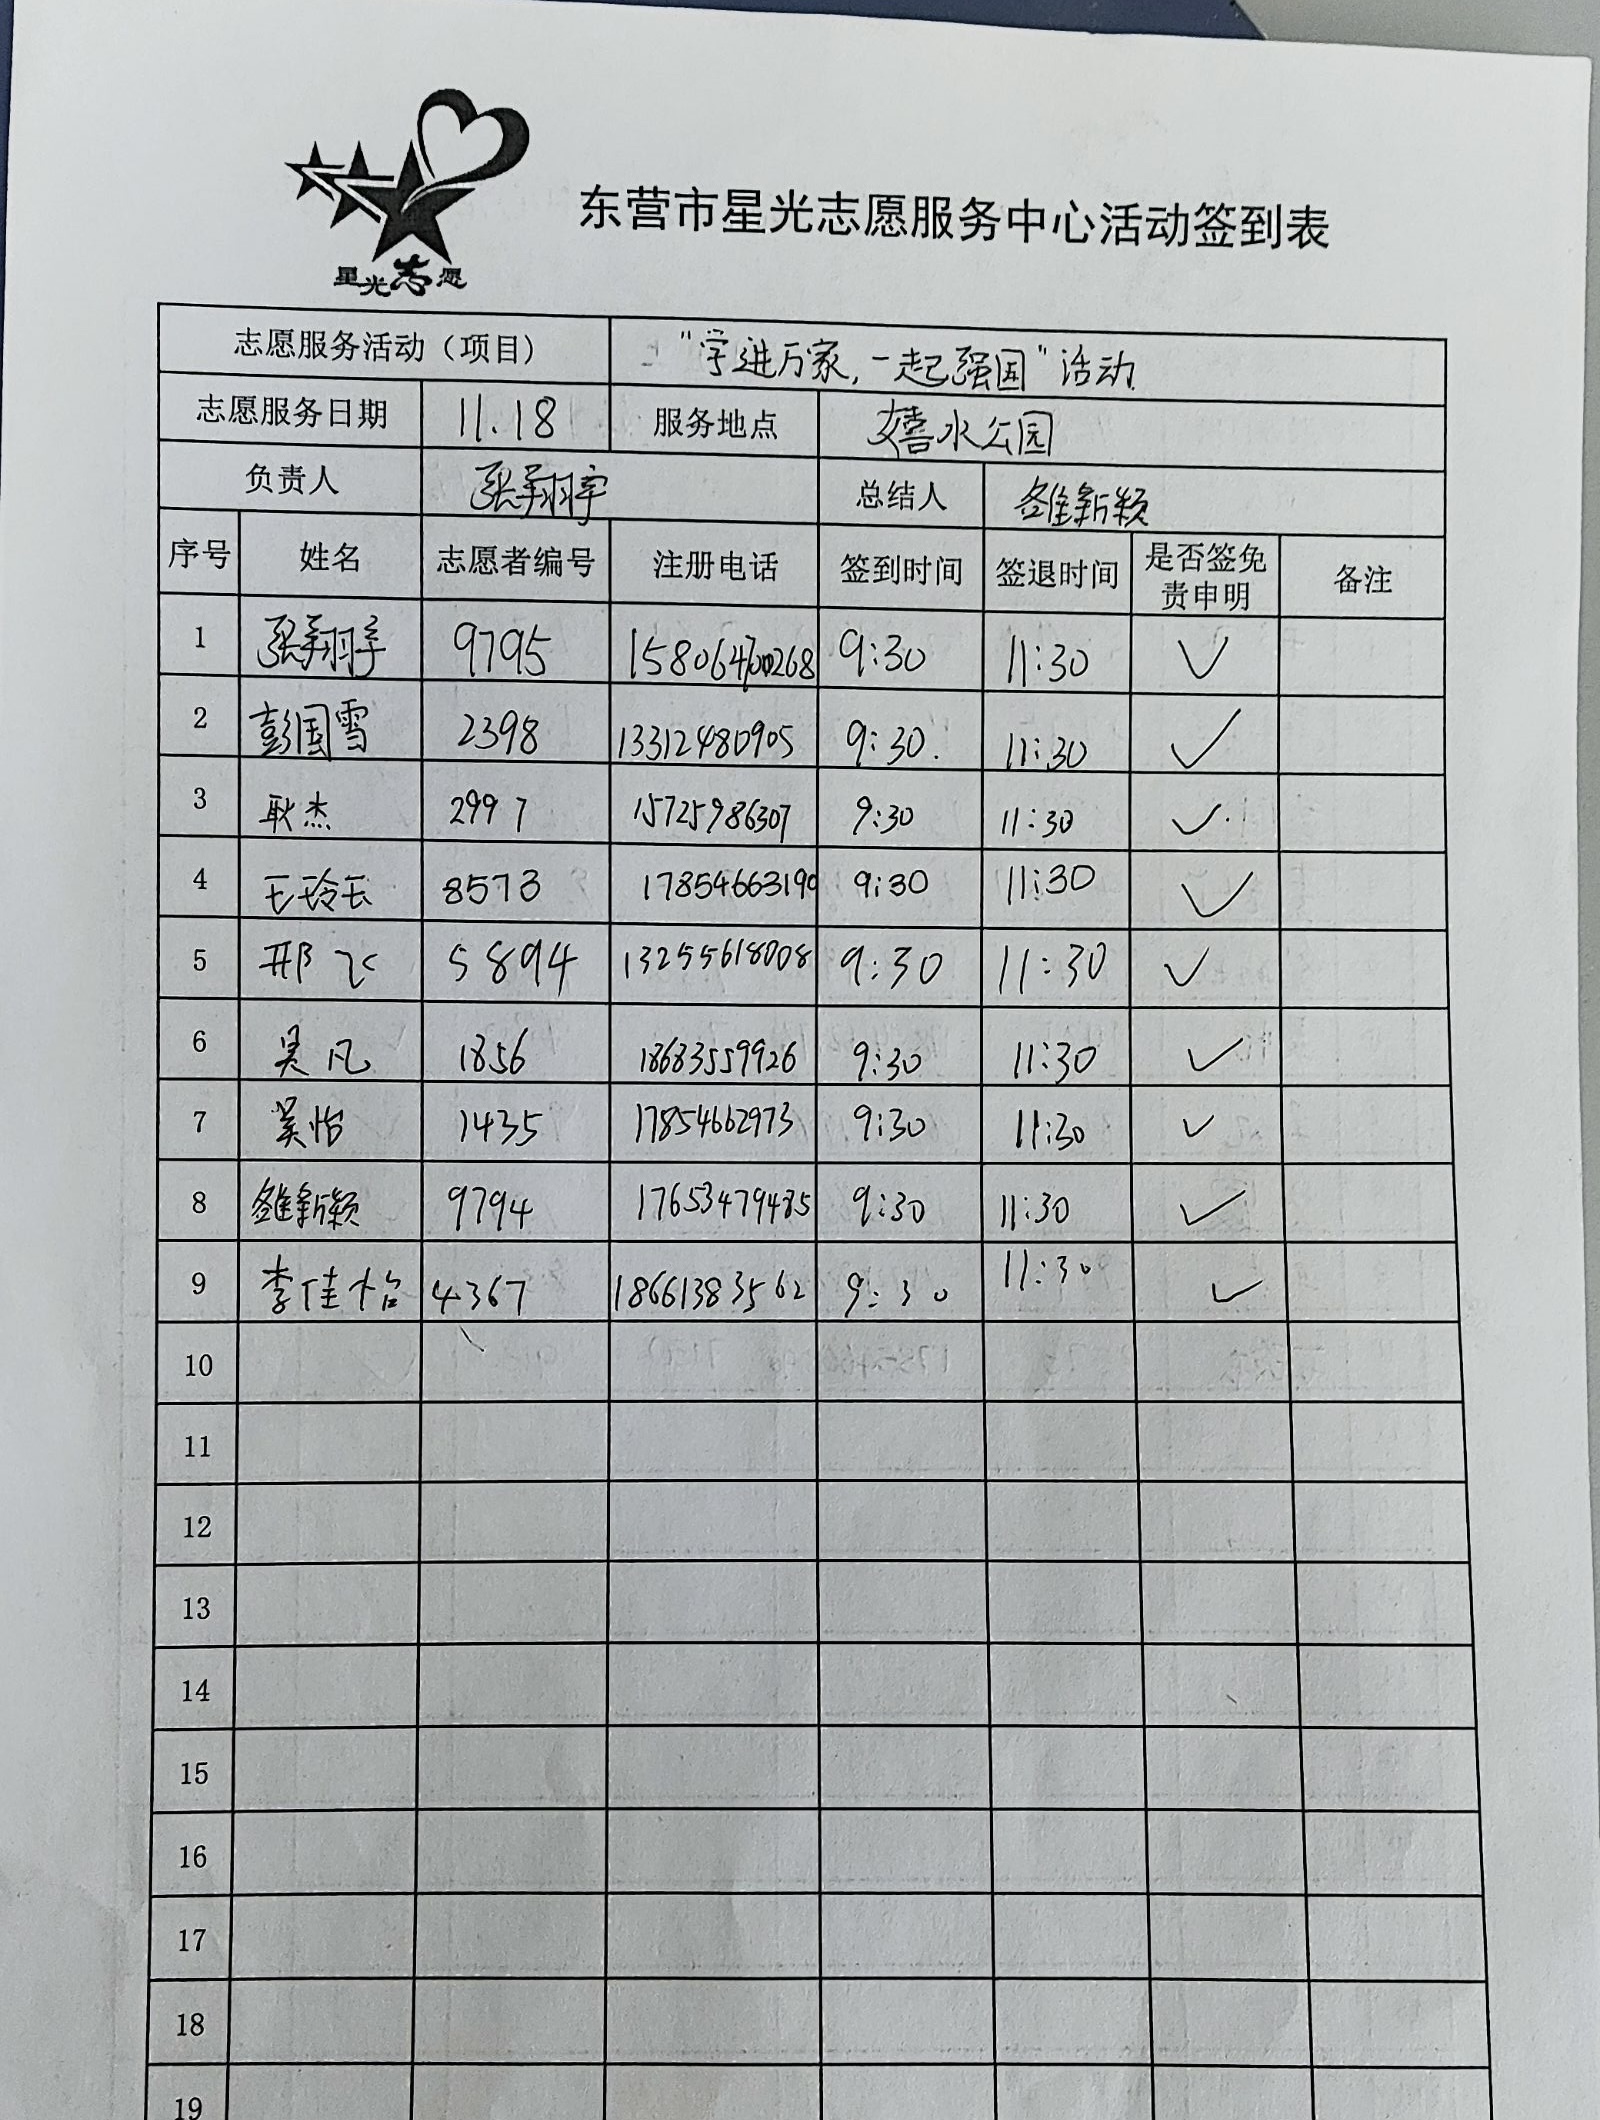 星光志愿
东营市星光志愿服务中心活动签到表
志愿服务活动（项目） "学进万家，一起强国"活动
志愿服务日期 11.18 服务地点 嬉水公园
负责人 张翔宇 总结人 新颖
序号 姓名 志愿者编号 注册电话 签到时间 签退时间 是否签免责申明 备注
1 张翔宇 9795 9:30 11:30 ✓
2 彭国雪 2398 13312480905 9:30. 11:30 ✓
3 耿杰 2997 15725986307 9:30 11:30 ✓
4 王玲玉 8573 17854663190 9:30 11:30 ✓
5 邢飞 5894 13255618008 9:30 11:30 ✓
6 吴凡 1856 18683559926 9:30 11:30 ✓
7 吴怡 1435 17854662973 9:30 11:30 ✓
8 新颖 9794 17653479485 9:30 11:30 ✓
9 李佳怡 4367 18661383562 9:30 11:30 ✓
10
11
12
13
14
15
16
17
18
19